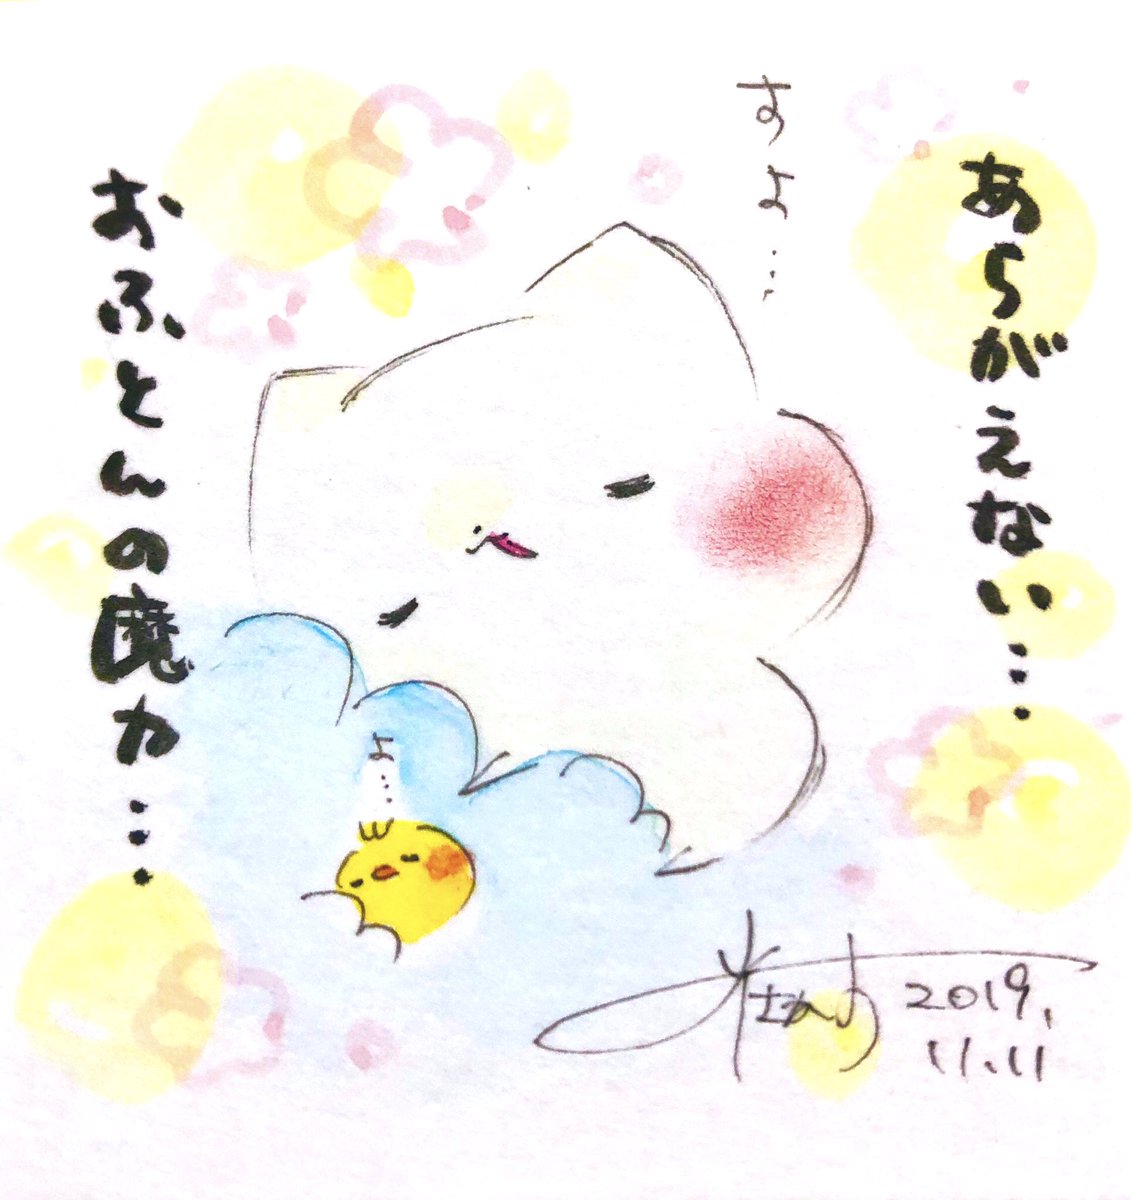 あらがえない…
すよ…
おふとんの魔力…
よ…
2019.
11.11